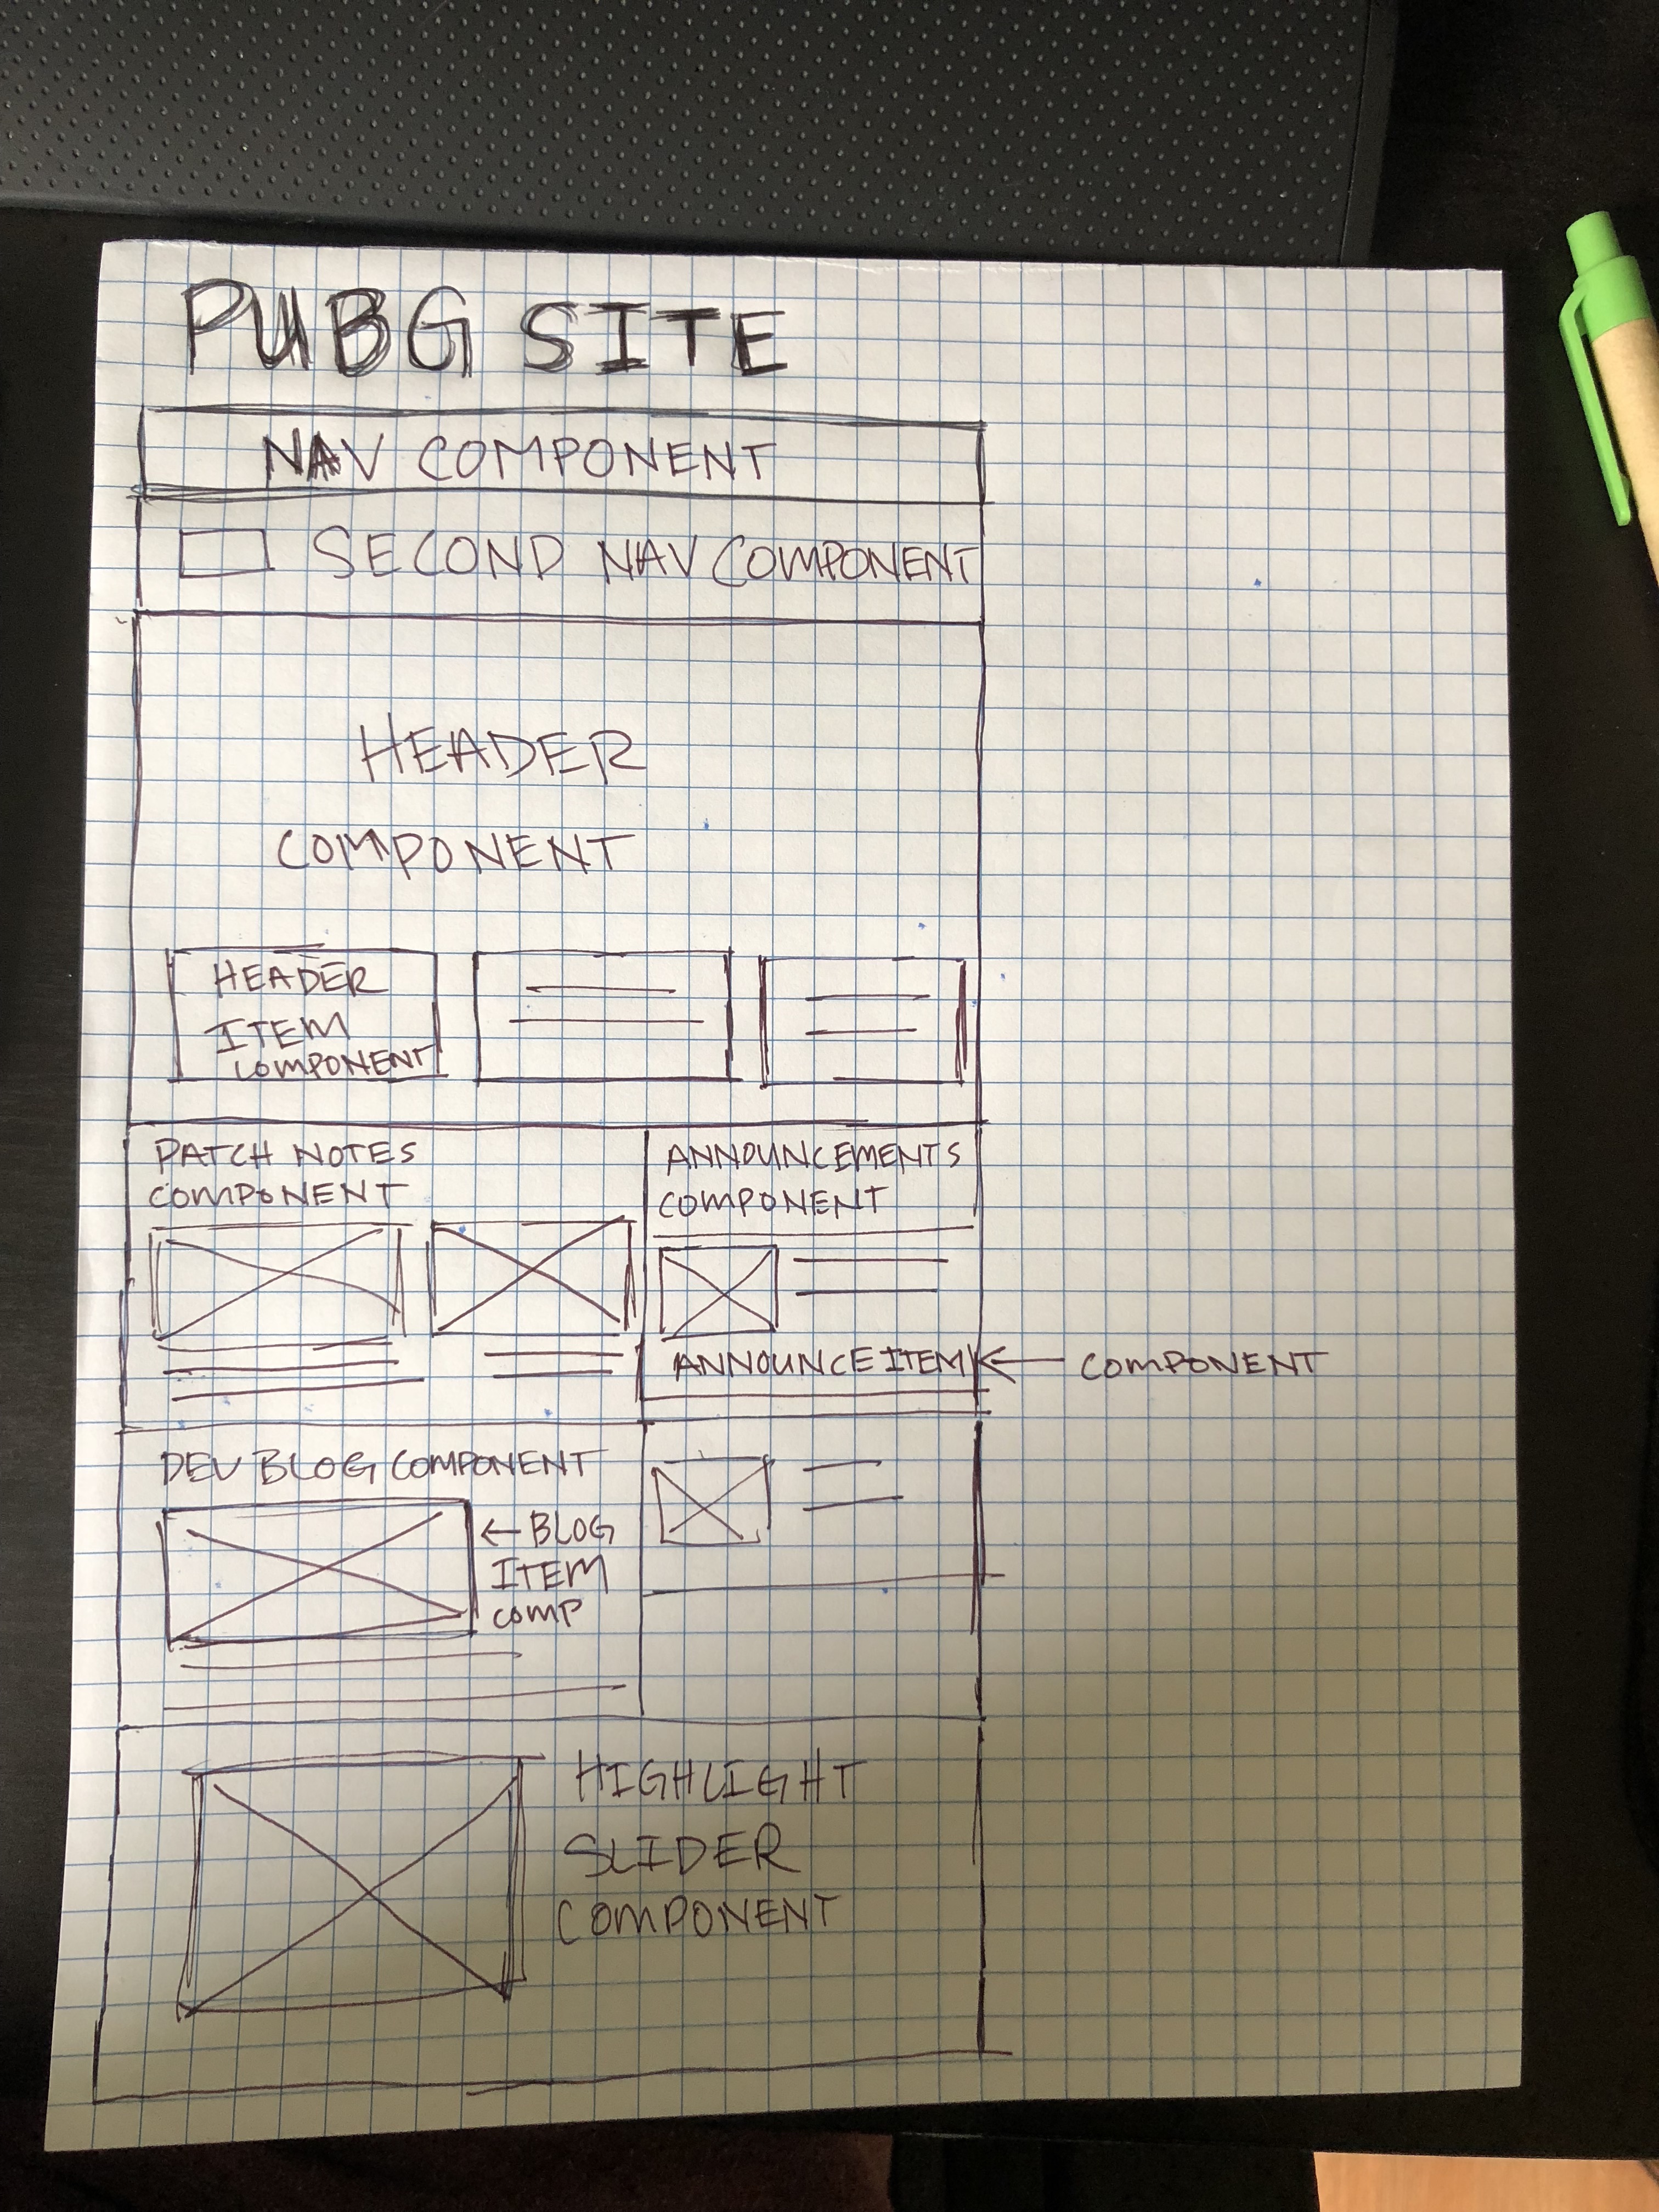 PUBG SITE
NAV COMPONENT
SECOND NAV COMPONENT
HEADER
COMPONENT
HEADER
ITEM
COMPONENT
PATCH NOTES
COMPONENT
ANNOUNCEMENTS
COMPONENT
ANNOUNCE ITEM ← COMPONENT
DEV BLOG COMPONENT
← BLOG
ITEM
COMP
HIGHLIGHT
SLIDER
COMPONENT